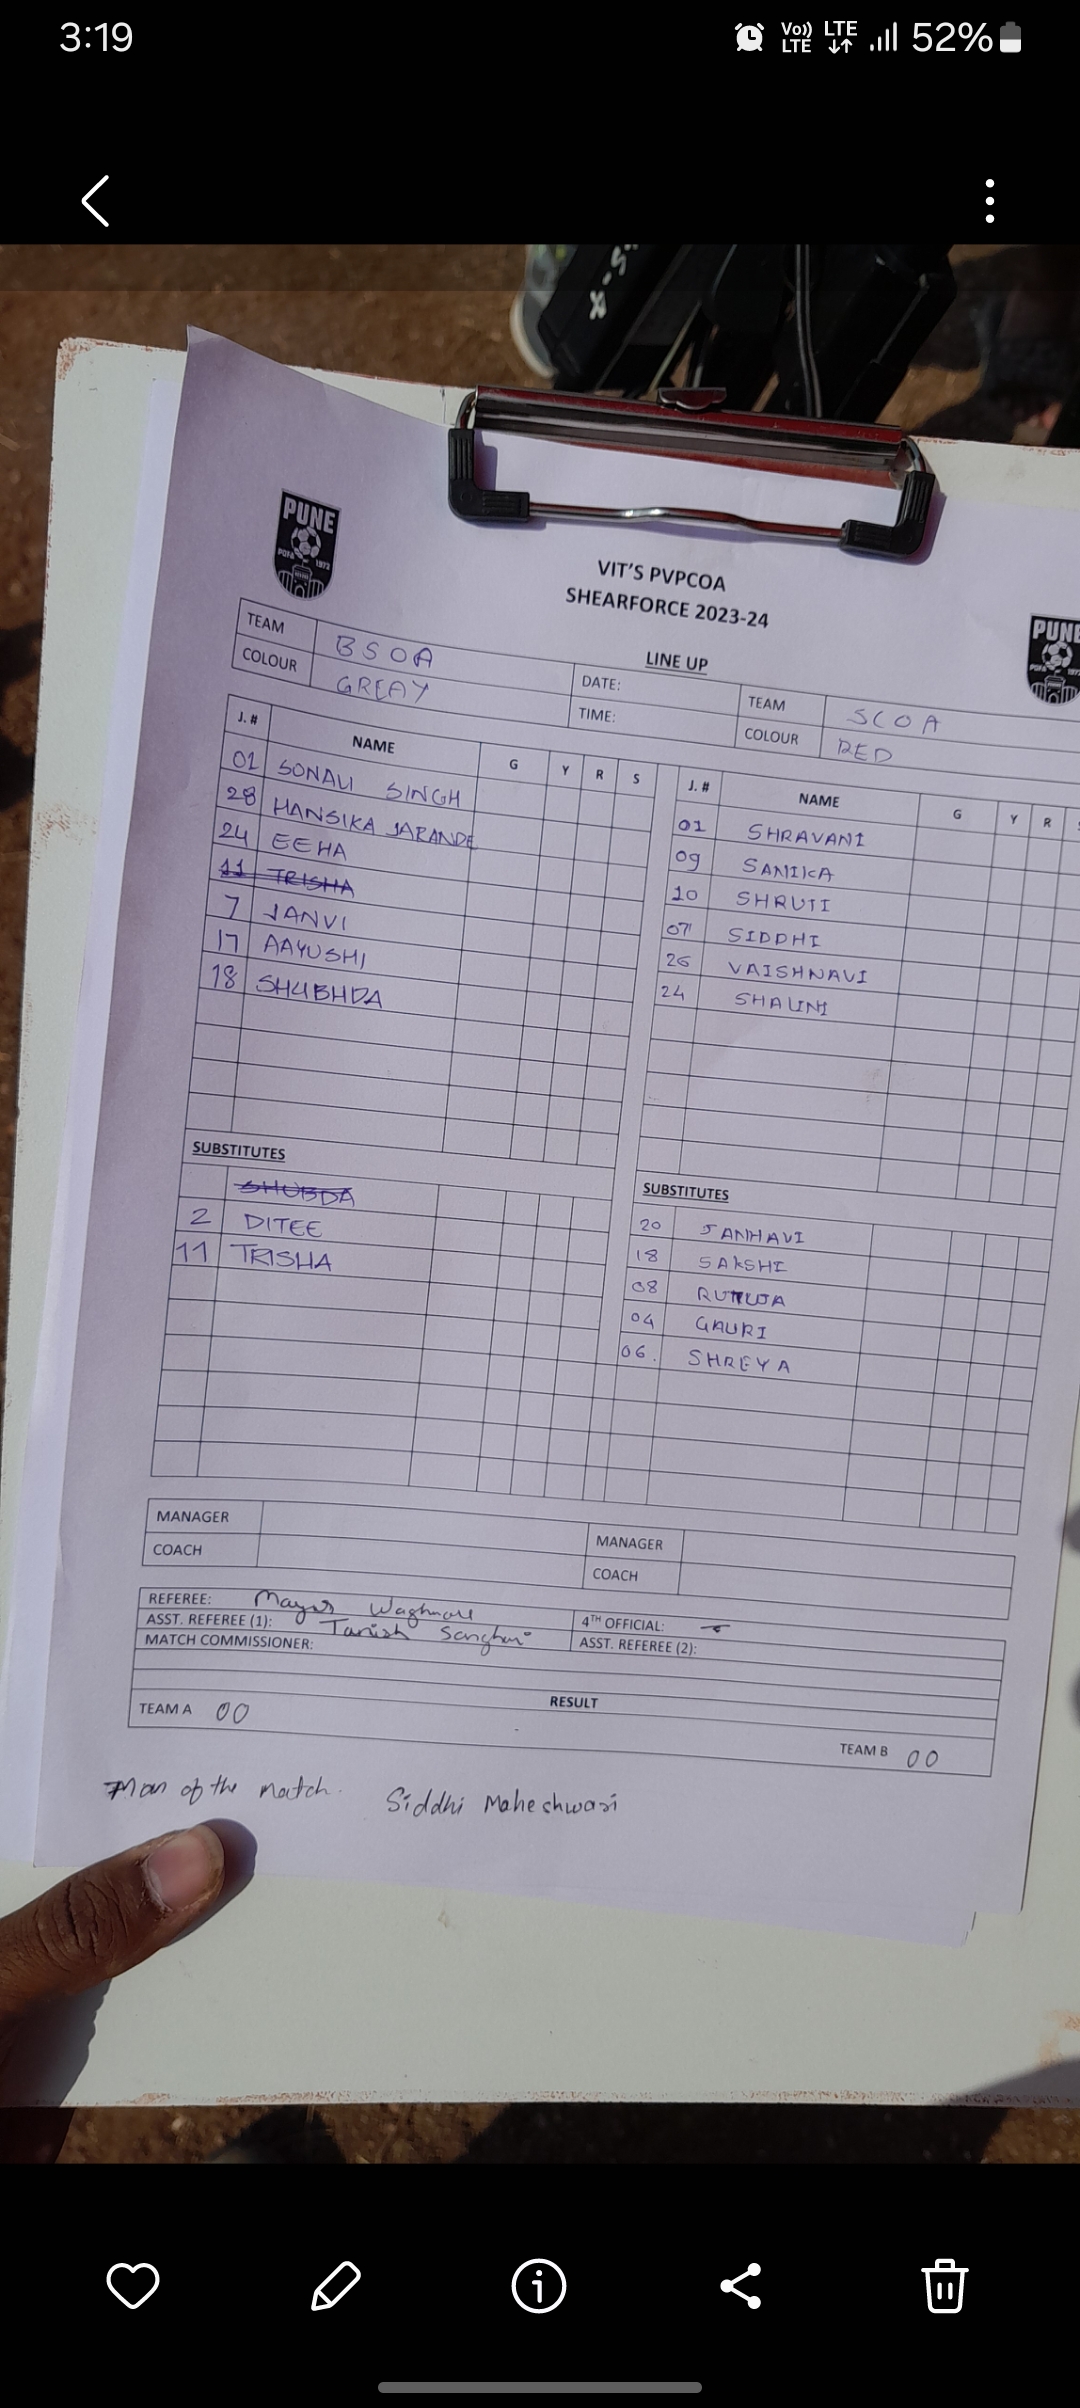 3:19
Vo)) LTE LTE 52%
S-X
PUNE
PDFA 1972
VIT'S PVPCOA
SHEARFORCE 2023-24
PUNE
LINE UP
TEAM BSOA
COLOUR GREAY
DATE:
TIME:
TEAM SCOA
COLOUR RED
J. # NAME G Y R S
01 SONALI SINGH
28 HANSIKA JARANDE
24 EEHA
11 TRISHA
7 JANVI
17 AAYUSHI
18 SHUBHDA
SUBSTITUTES
SHUBDA
2 DITEE
11 TRISHA
J. # NAME G Y R
01 SHRAVANI
09 SANIKA
10 SHRUTI
07 SIDDHI
26 VAISHNAVI
24 SHALINI
SUBSTITUTES
20 JANHAVI
18 SAKSHI
08
04 GAURI
06. SHREYA
MANAGER
COACH
MANAGER
COACH
REFEREE: Waghmare
4TH OFFICIAL: -
ASST. REFEREE (1): Tanish
ASST. REFEREE (2):
MATCH COMMISSIONER:
RESULT
TEAM A 00
TEAM B 00
Man of the match. Siddhi Maheshwari